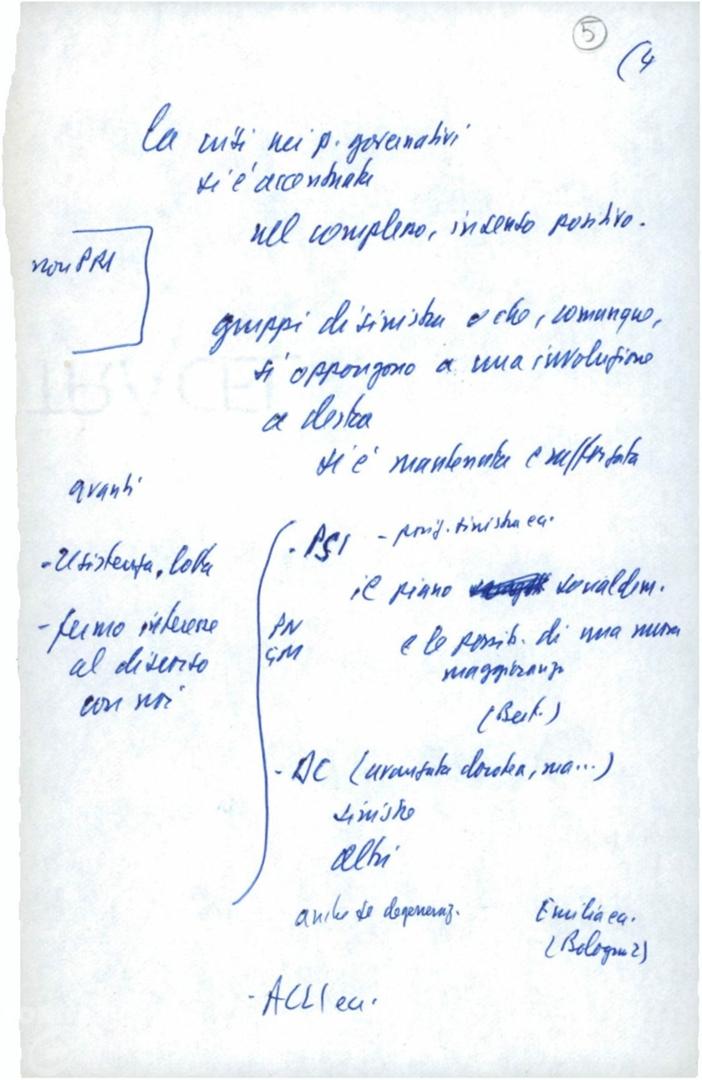 5
(4
la crisi nei p. governativi
si è accentuata
nel complesso, in senso positivo.
non PRI
gruppi di sinistra o che, comunque,
si oppongono a una involuzione
a destra
si è mantenuta e rafforzata
avanti
- PSI - posiz. sinistra ecc.
- resistenza, lotta
il piano socialdem.
- fermo interesse
PN
e le possib. di una nuova
al discorso
GM
maggioranza
con noi
(Bert.)
- DC (avanzata dorotea, ma...)
sinistre
altri
anche se degeneraz.
Emilia ecc.
(Bologna)
- ACLI ecc.